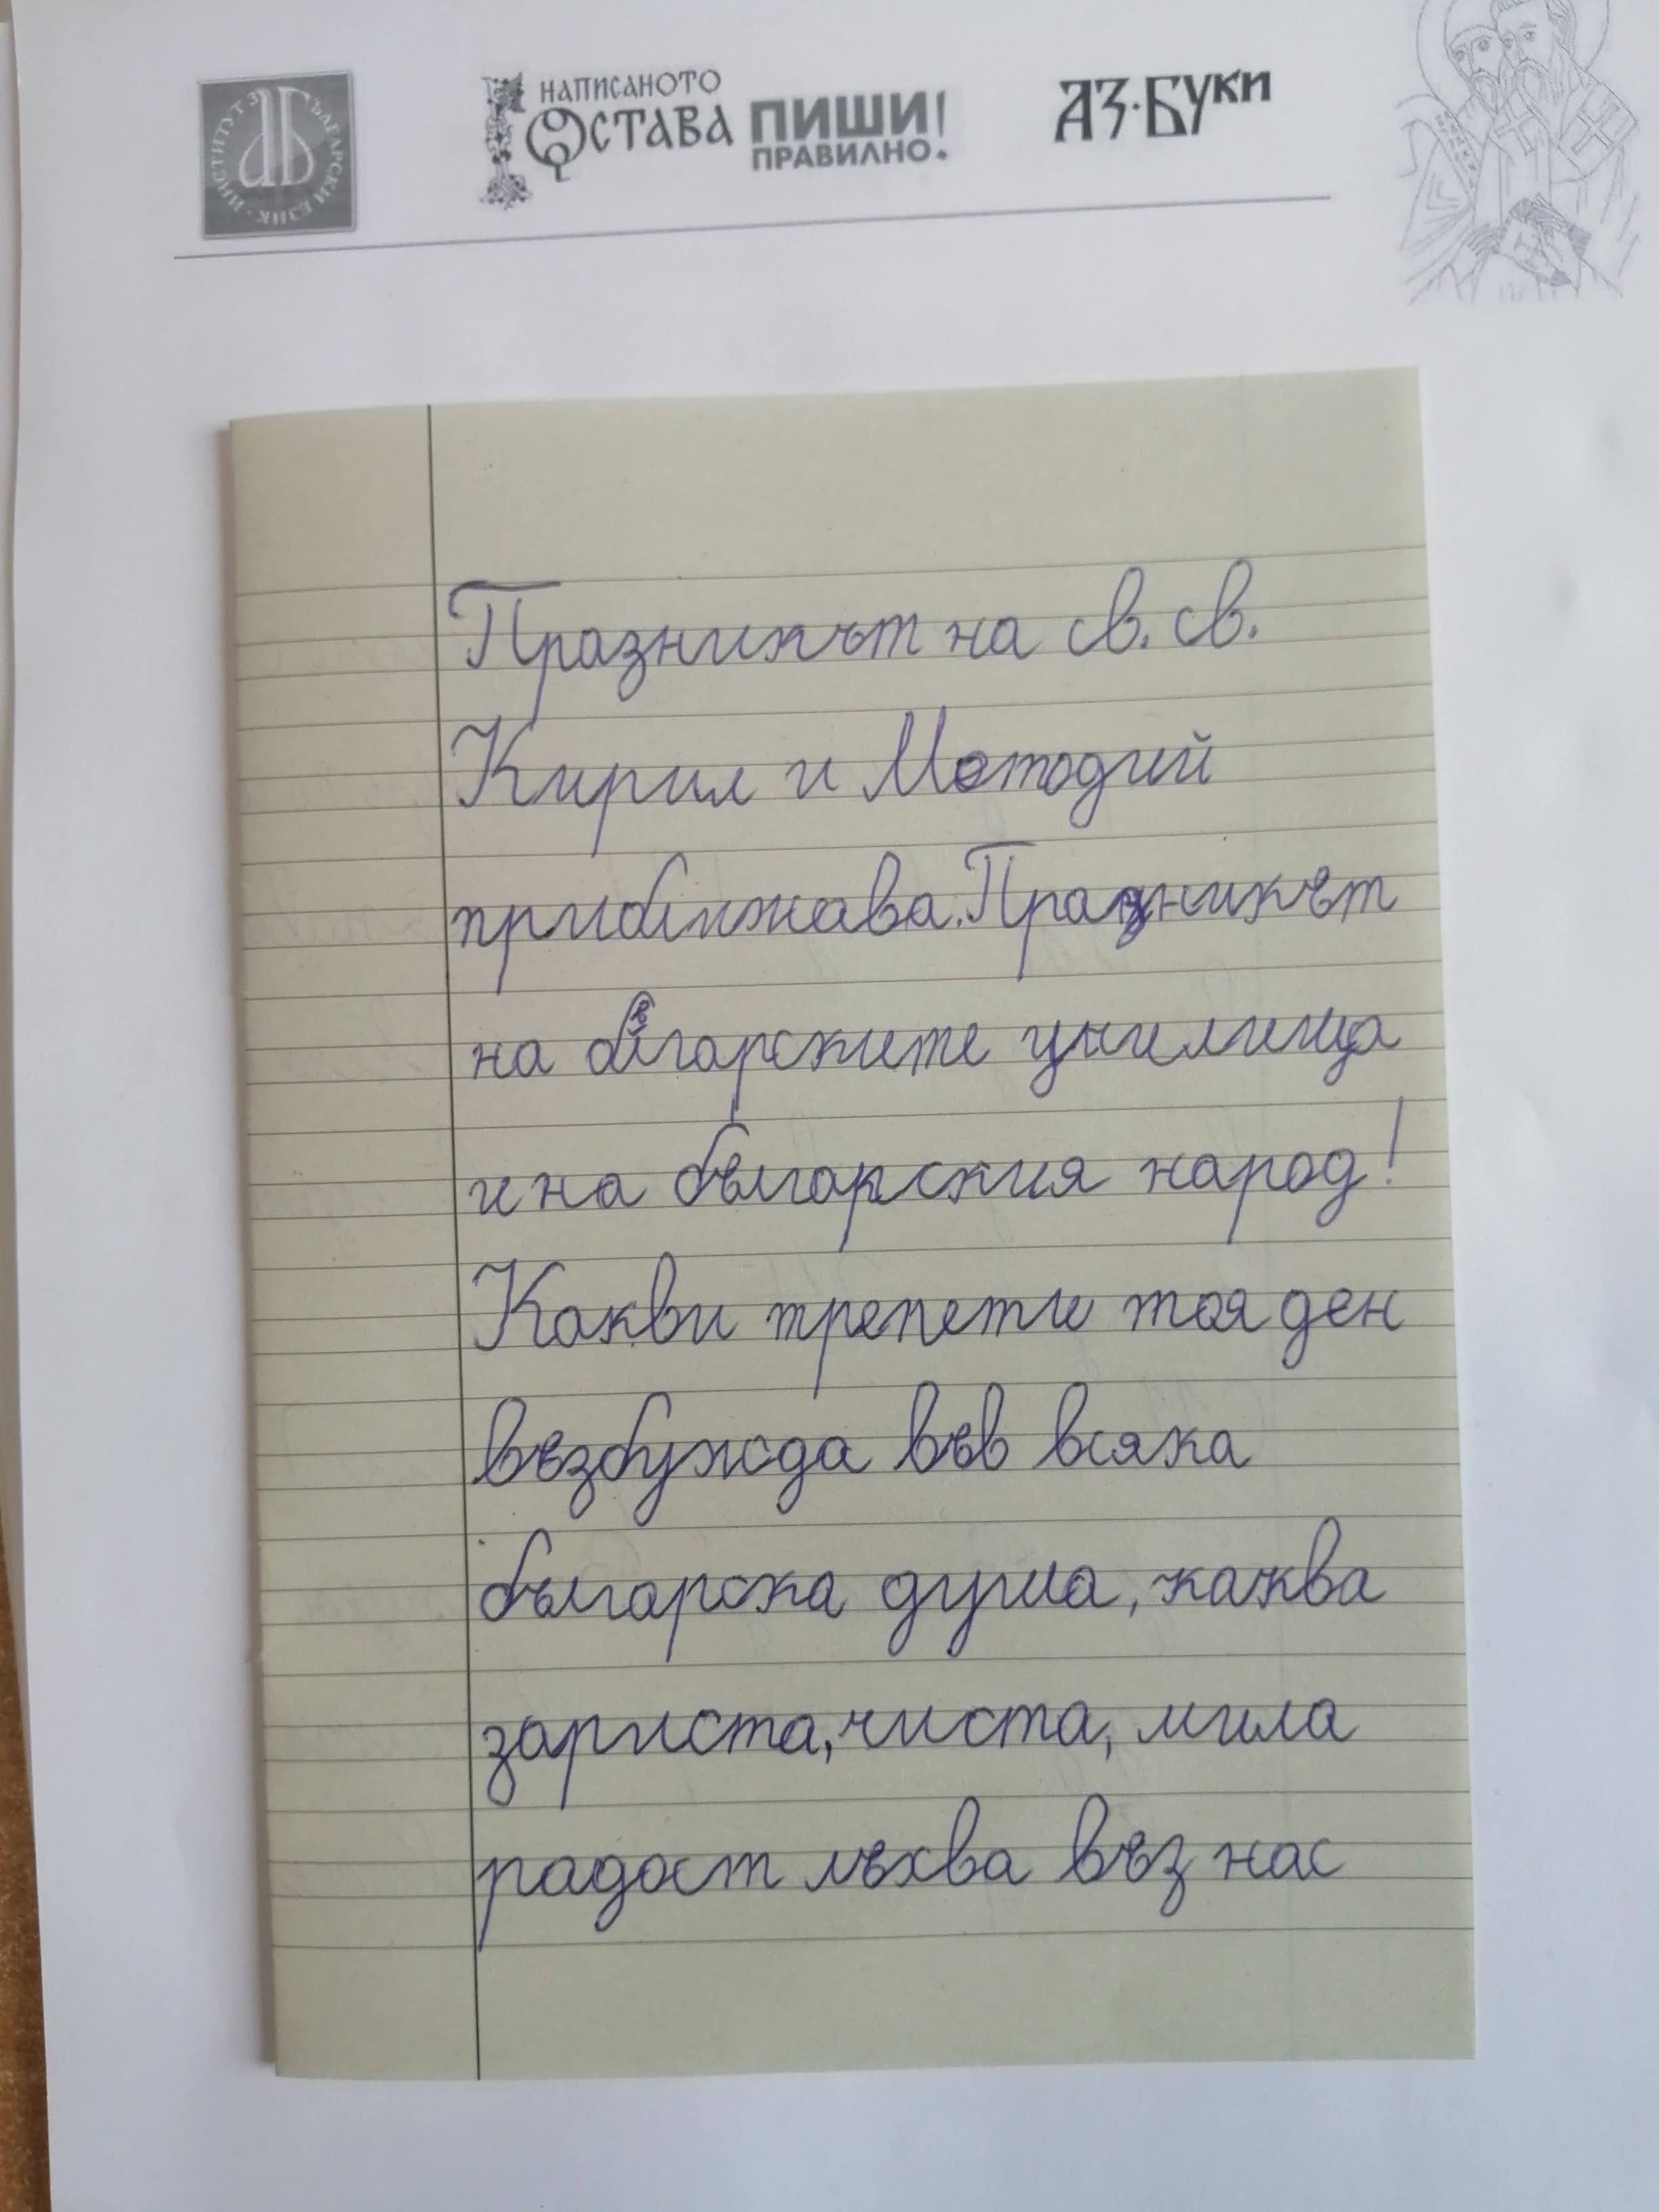 ИНСТИТУТ ЗА БЪЛГАРСКИ ЕЗИК
НАПИСАНОТО
ОСТАВА
ПИШИ!
ПРАВИЛНО.
АЗ·БУКИ
Празникът на св. св.
Кирил и Методий
приближава. Празникът
на българските училища
и на българския народ!
Какви трепети тоя ден
възбужда във всяка
българска душа, каква
зариста, чиста, мила
радост лъхва въз нас